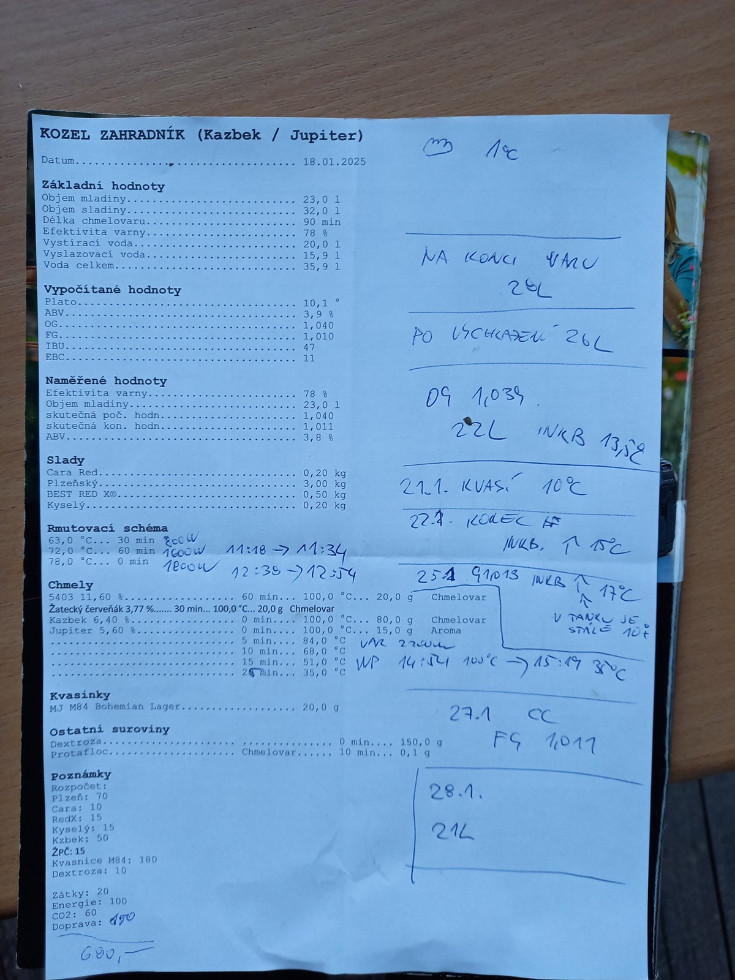 KOZEL ZAHRADNÍK (Kazbek / Jupiter)
Datum................................ 18.01.2025
Základní hodnoty
Objem mladiny......................... 23,0 l
Objem sladiny......................... 32,0 l
Délka chmelovaru...................... 90 min
Efektivita varny...................... 78 %
Vystírací voda........................ 20,0 l
Vyslazovací voda...................... 15,9 l
Voda celkem........................... 35,9 l
Vypočítané hodnoty
Plato................................. 10,1 °
ABV................................... 3,9 %
OG.................................... 1,040
FG.................................... 1,010
IBU................................... 47
EBC................................... 11
Naměřené hodnoty
Efektivita varny...................... 78 %
Objem mladiny......................... 23,0 l
skutečná poč. hodn.................... 1,040
skutečná kon. hodn.................... 1,011
ABV................................... 3,8 %
Slady
Cara Red.............................. 0,20 kg
Plzeňský.............................. 3,00 kg
BEST RED X®........................... 0,50 kg
Kyselý................................ 0,20 kg
Rmutovací schéma
63,0 °C... 30 min 800W
72,0 °C... 60 min 1600W 11:18 → 11:34
78,0 °C... 0 min 1800W 12:38 → 12:54
Chmely
5403 11,60 %................... 60 min... 100,0 °C... 20,0 g Chmelovar
Žatecký červeňák 3,77 %....... 30 min... 100,0 °C... 20,0 g Chmelovar
Kazbek 6,40 %.................. 0 min... 100,0 °C... 80,0 g Chmelovar
Jupiter 5,60 %................. 0 min... 100,0 °C... 15,0 g Aroma
............................... 5 min... 84,0 °C VAR
............................... 10 min... 68,0 °C
............................... 15 min... 51,0 °C WP 14:54 100°C → 15:19 35°C
............................... 25 min... 35,0 °C
Kvasinky
MJ M84 Bohemian Lager................. 20,0 g
Ostatní suroviny
Dextroza.................... ............. 0 min.... 150,0 g
Protafloc................... Chmelovar.... 10 min... 0,1 g
Poznámky
Rozpočet:
Plzeň: 70
Cara: 10
RedX: 15
Kyselý: 15
Kzbek: 50
ŽPČ: 15
Kvasnice M84: 180
Dextroza: 10
Zátky: 20
Energie: 100
CO2: 60
Doprava: 150
680,—
1°C
NA KONCI VARU
28L
PO VYCHLAZENÍ 26L
OG 1,039
22L INKB 13,5°C
21.1. KVASÍ 10°C
22.1. KONEC
INKB. ↑ 15°C
25.1 G1,013 INKB ↑ 17°C
V TANKU JE
STÁLE 10°C
27.1 CC
FG 1,011
28.1.
21L